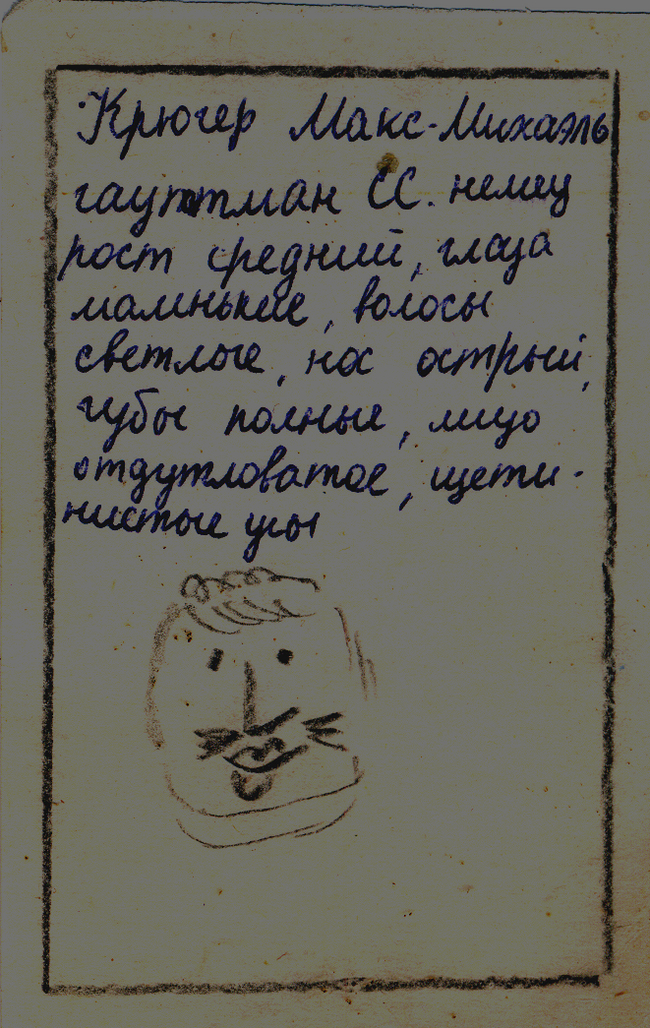 Крюгер Макс-Михаэль
гауптман СС. немец
рост средний, глаза
маленькие, волосы
светлые, нос острый,
губы полные, лицо
отдутловатое, щети-
нистые усы